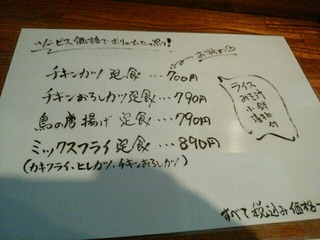 サービス価格でボリュームたっぷり!
お薦め
チキンカツ定食…700円
チキンおろしカツ定食…790円
鳥の唐揚げ定食…790円
ミックスフライ定食…890円
(カキフライ、ヒレカツ、チキンおろしカツ)
ライス
みそ汁
小鉢
漬物
付
すべて税込み価格